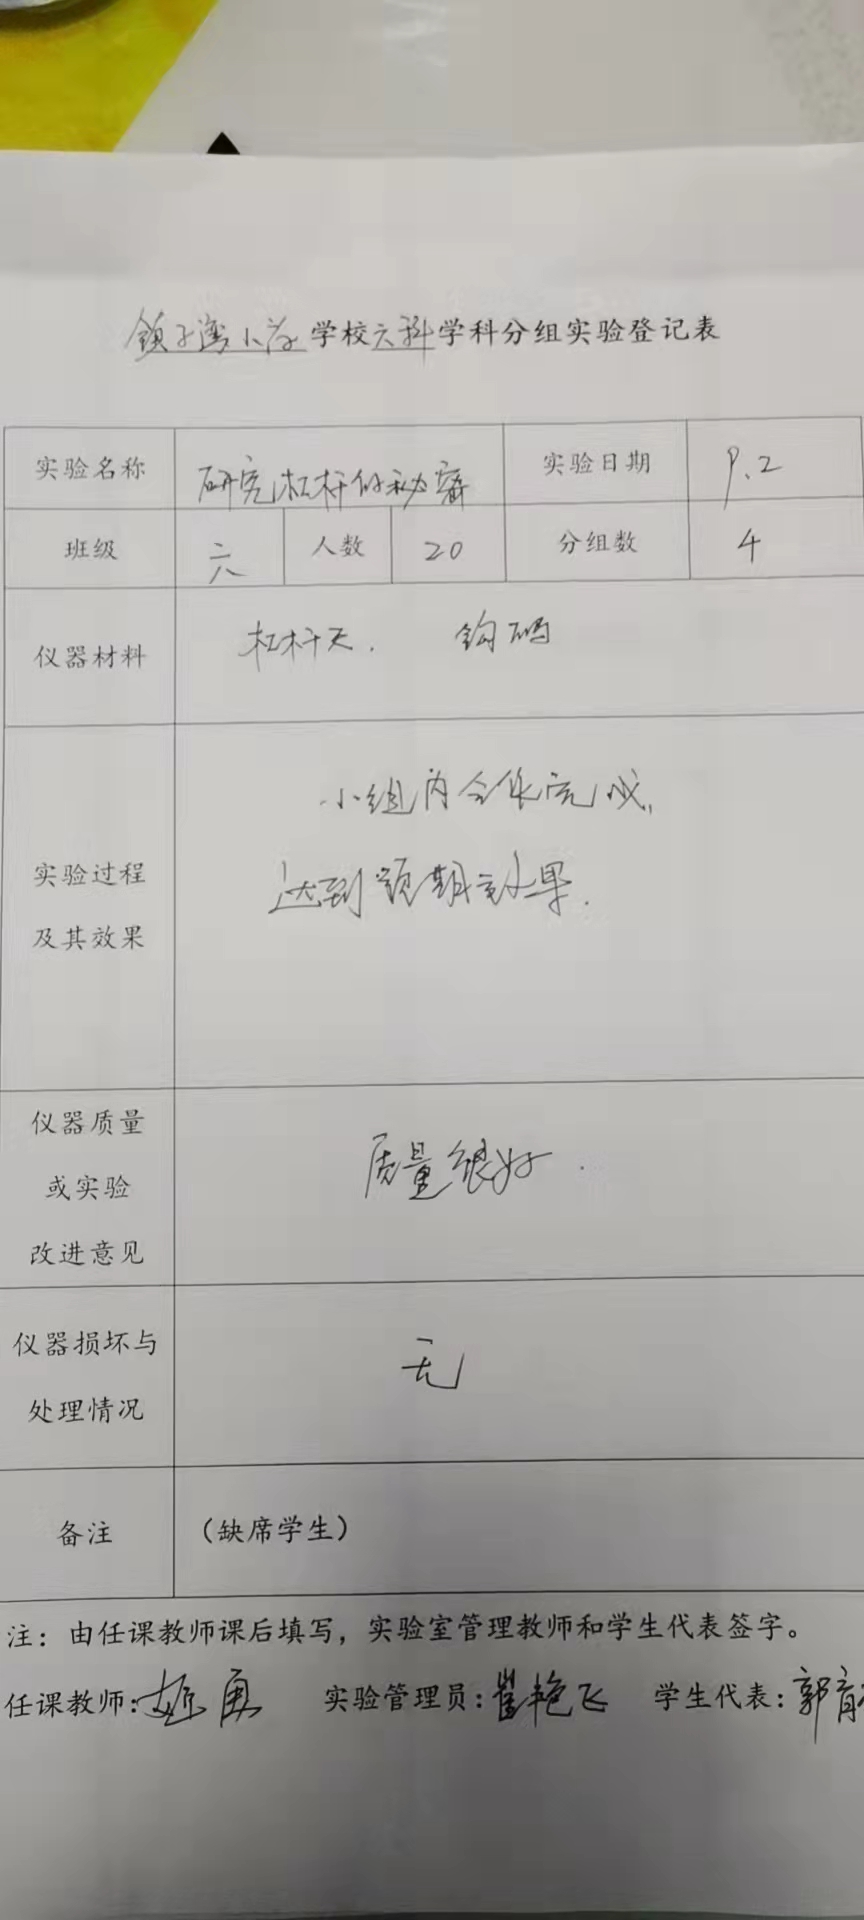 镇子湾小学学校六科学科分组实验登记表
实验名称 研究杠杆的秘密 实验日期 9.2
班级 六 人数 20 分组数 4
仪器材料 杠杆尺. 钩码
实验过程
及其效果
小组内合作完成,
达到预期效果.
仪器质量
或实验
改进意见
质量很好.
仪器损坏与
处理情况
无
备注 (缺席学生)
注:由任课教师课后填写,实验室管理教师和学生代表签字。
任课教师: 实验管理员:崔艳飞 学生代表:郭育